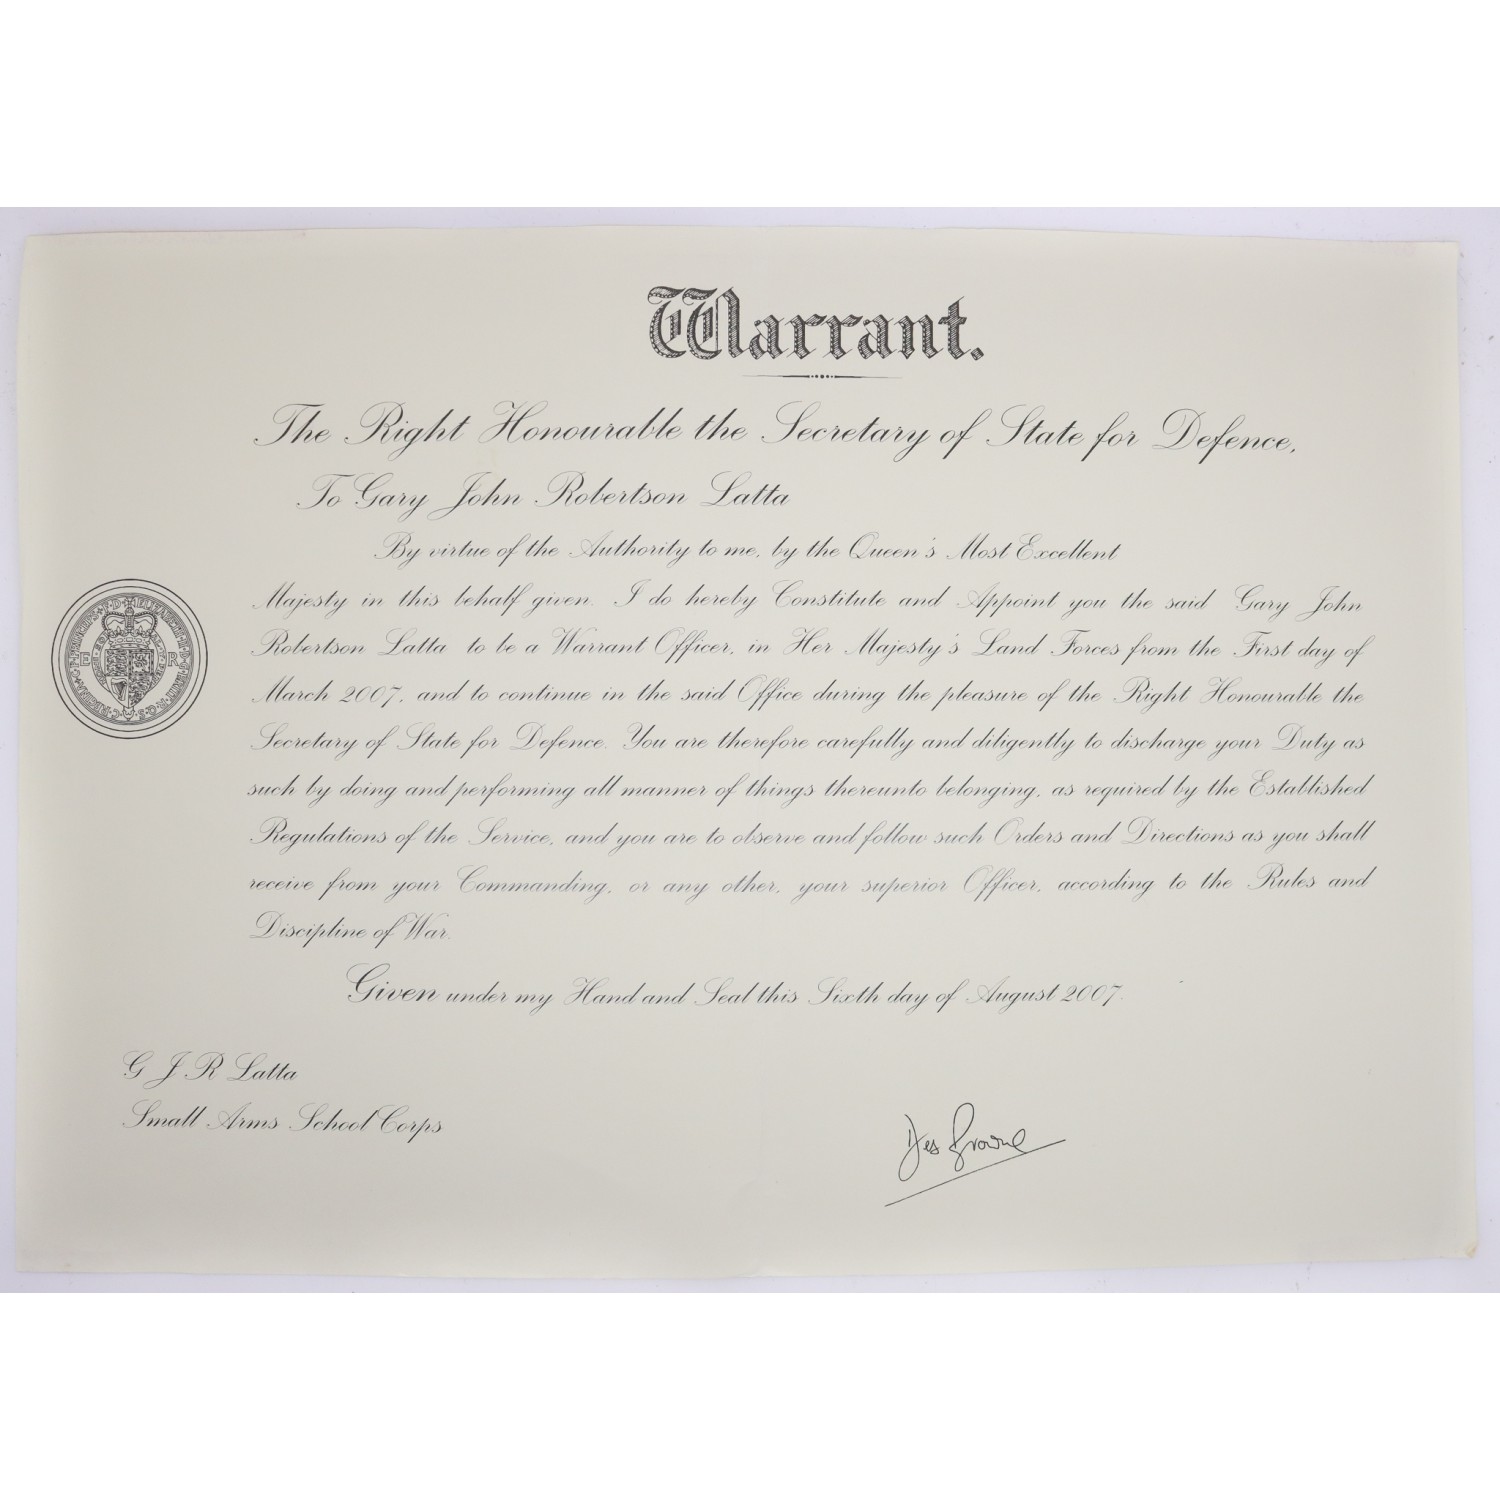 Warrant.
The Right Honourable the Secretary of State for Defence,
To Gary John Robertson Latta
By virtue of the Authority to me, by the Queen's Most Excellent
Majesty in this behalf given. I do hereby Constitute and Appoint you the said Gary John
Robertson Latta to be a Warrant Officer, in Her Majesty's Land Forces from the First day of
March 2007, and to continue in the said Office during the pleasure of the Right Honourable the
Secretary of State for Defence. You are therefore carefully and diligently to discharge your Duty as
such by doing and performing all manner of things thereunto belonging, as required by the Established
Regulations of the Service, and you are to observe and follow such Orders and Directions as you shall
receive from your Commanding, or any other, your superior Officer, according to the Rules and
Discipline of War.
Given under my Hand and Seal this Sixth day of August 2007.
E R
G J R Latta
Small Arms School Corps
Des Browne